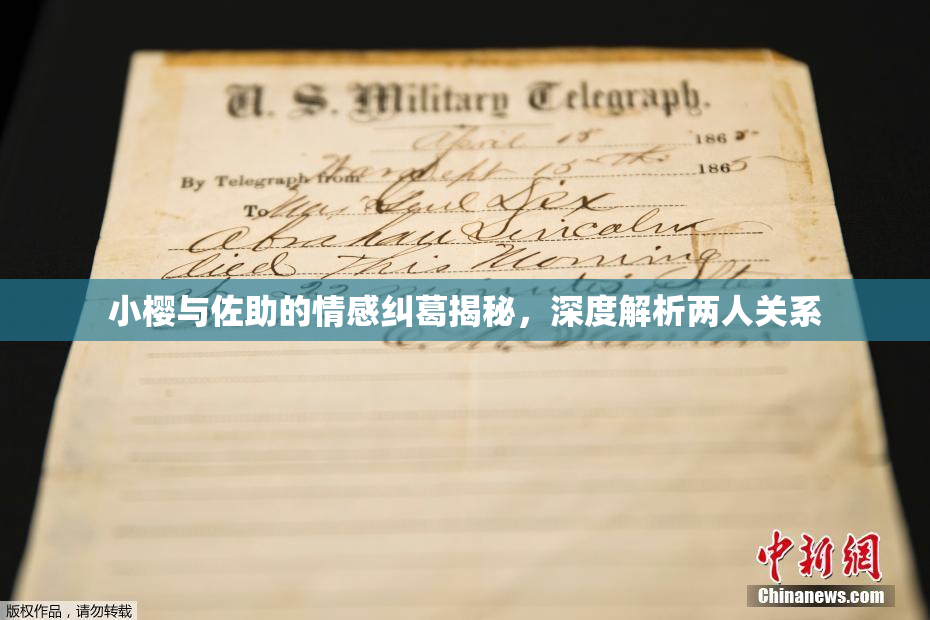 U. S. Military Telegraph.
April 15 1865
By Telegraph from War Dept 15th 1865
To Maj Genl Dix
Abraham Lincoln
died This Morning
22 minutes after
E. M. Stanton
小樱与佐助的情感纠葛揭秘，深度解析两人关系
中新網
Chinanews.com
版权作品，请勿转载